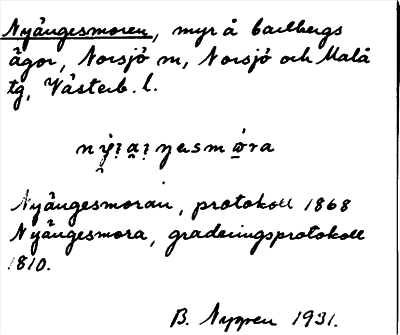 Nyängesmoren, myr å Carlbergs
ägor, Norsjö sn, Norsjö och Malå
tg, Västerb. l.
Nyängesmoran, protokoll 1868
Nyängesmora, graderingsprotokoll
1810.
B. Nygren 1931.